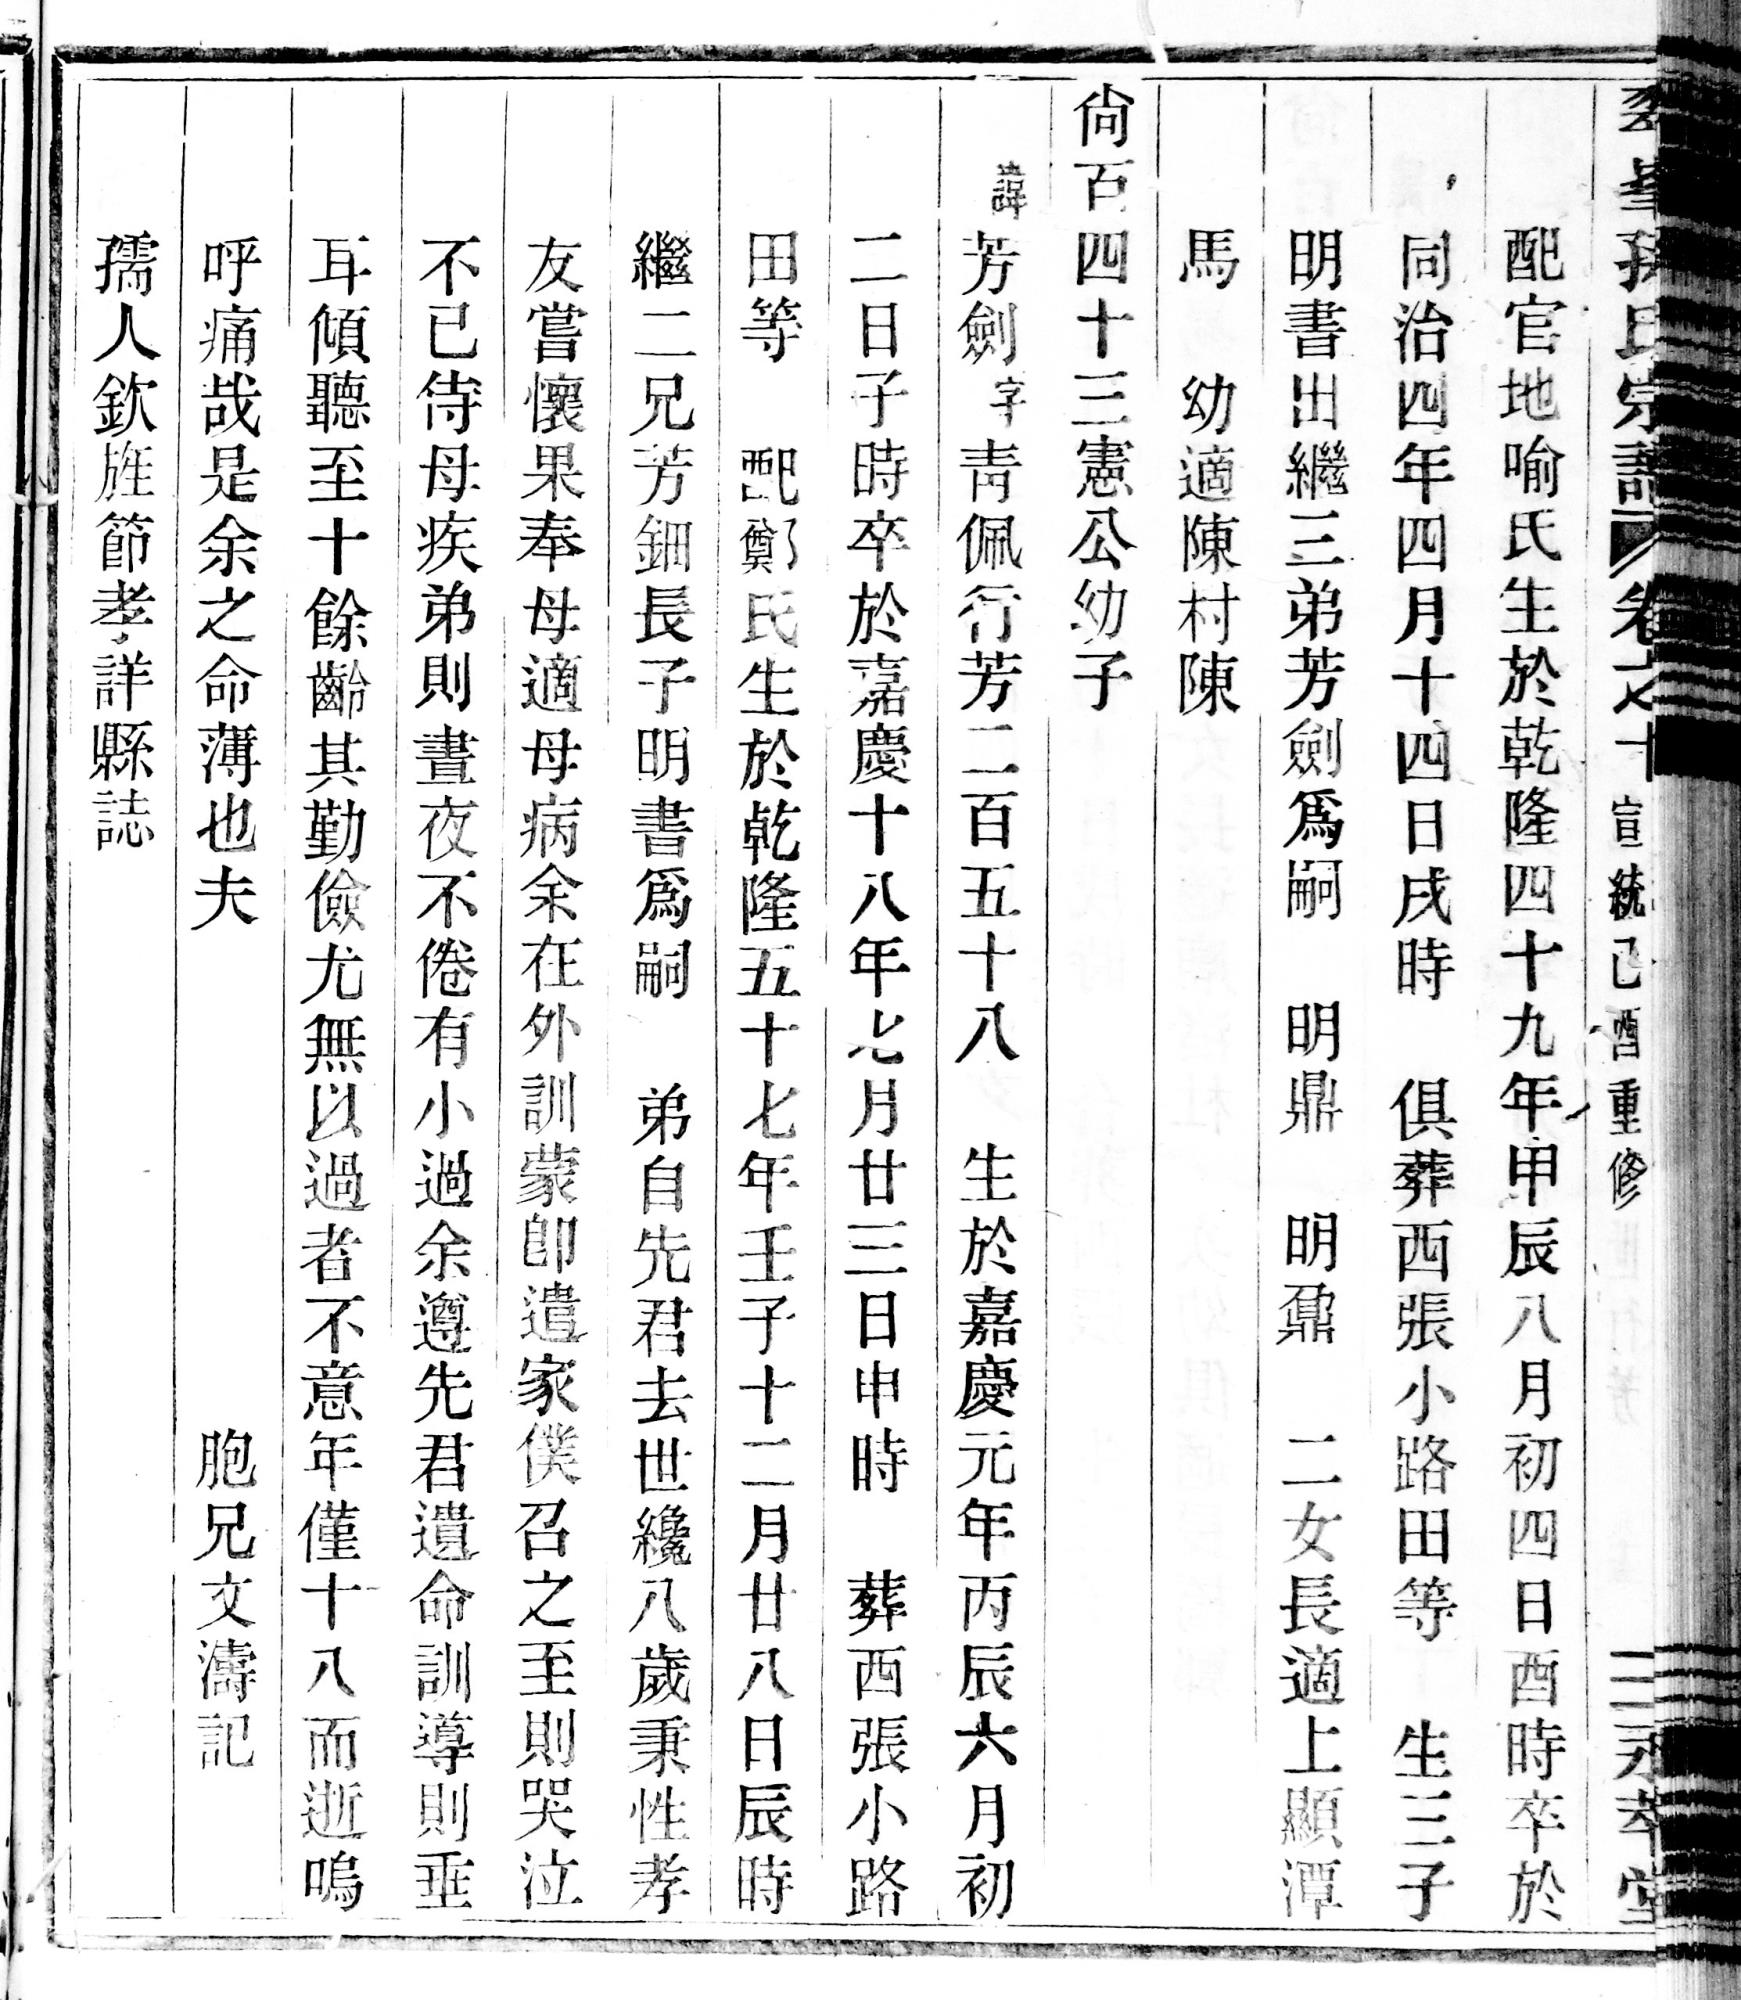 孫氏宗譜 卷之十 宣統己酉重修 二 永萃堂
配官地喻氏生於乾隆四十九年甲辰八月初四日酉時卒於
同治四年四月十四日戌時 俱葬西張小路田等 生三子
明書出繼三弟芳劍爲嗣 明鼎 明鼐 二女長適上顯潭
馬 幼適陳村陳
尙百四十三憲公幼子
諱芳劍字靑佩行芳二百五十八 生於嘉慶元年丙辰六月初
二日子時卒於嘉慶十八年七月廿三日申時 葬西張小路
田等 配鄭氏生於乾隆五十七年壬子十二月廿八日辰時
繼二兄芳鈿長子明書爲嗣 弟自先君去世纔八歲秉性孝
友嘗懷果奉母適母病余在外訓蒙卽遣家僕召之至則哭泣
不已侍母疾弟則晝夜不倦有小過余遵先君遺命訓導則垂
耳傾聽至十餘齡其勤儉尤無以過者不意年僅十八而逝嗚
呼痛哉是余之命薄也夫 胞兄文濤記
孺人欽旌節孝詳縣誌